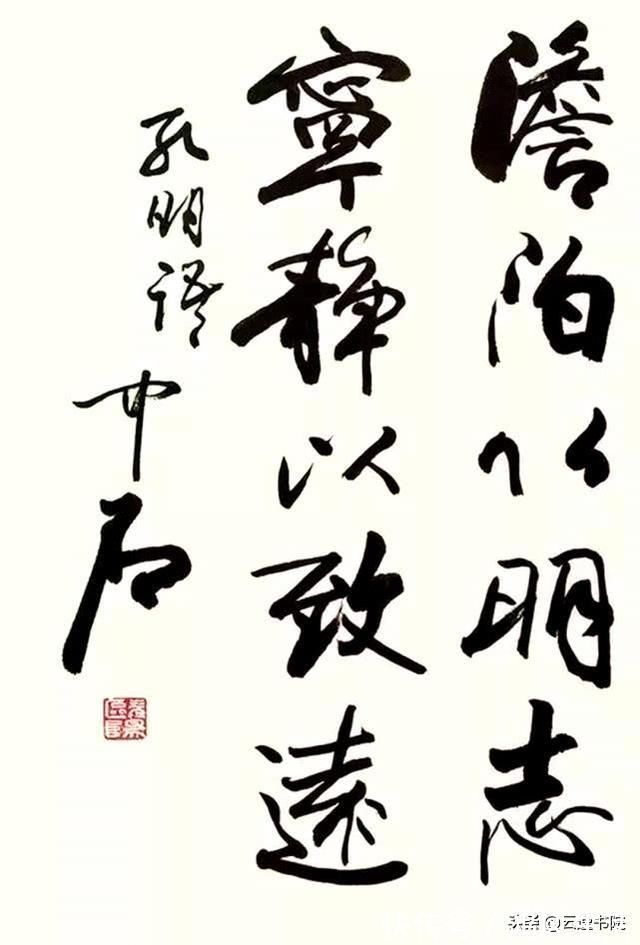 澹泊以明志
寧静以致遠
孔明語
中石
头条 @云书院
快传号 /